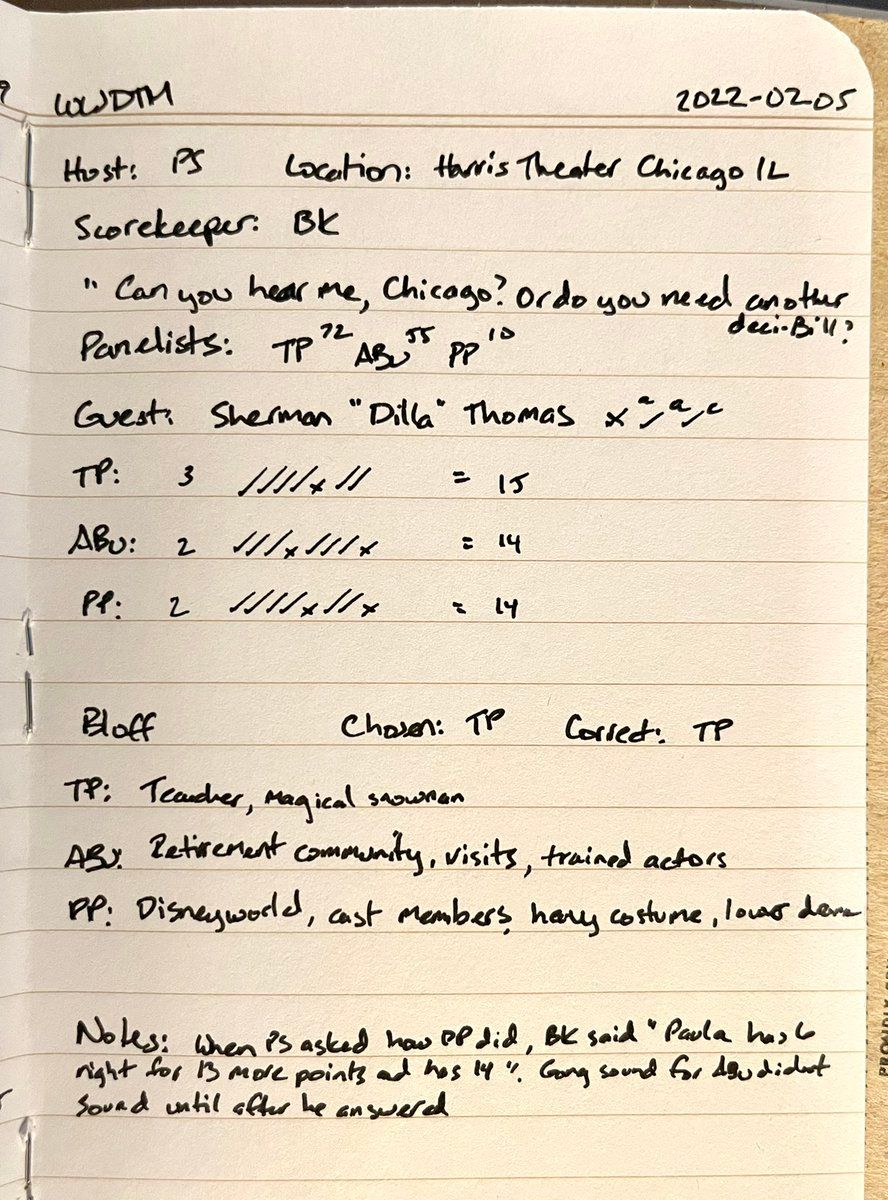 WWDTM 2022-02-05
Host: PS Location: Harris Theater Chicago IL
Scorekeeper: BK
" Can you hear me, Chicago? Or do you need another
deci-Bill?
Panelists: TP 72 ABu 55 PP 10
Guest: Sherman "Dilla" Thomas x a/ a/ c
TP: 3 ////x// = 15
ABu: 2 ///x///x = 14
PP: 2 ////x//x = 14
Bluff Chosen: TP Correct: TP
TP: Teacher, magical snowman
ABu: Retirement community, visits, trained actors
PP: Disneyworld, cast members, heavy costume, lower
Notes: When PS asked how PP did, BK said "Paula has 6
right for 13 more points and has 14". Gong sound for ABu didn't
sound until after he answered